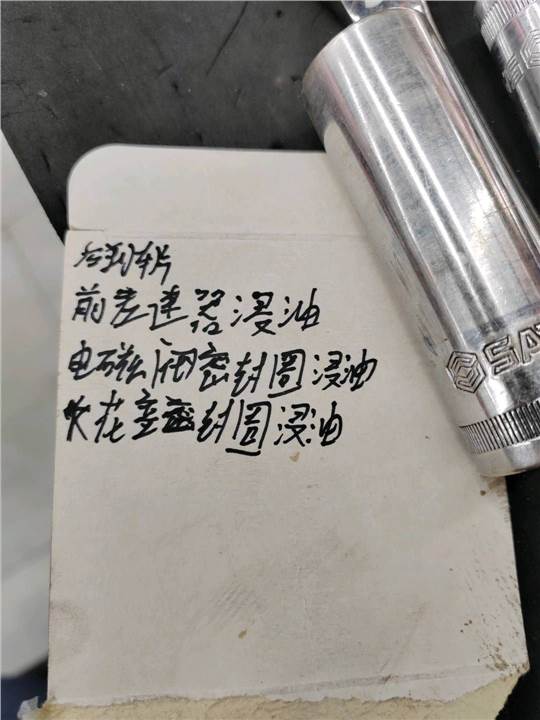 后刹车片
前差速器浸油
电磁阀密封圈浸油
火花塞密封圈浸油
SA